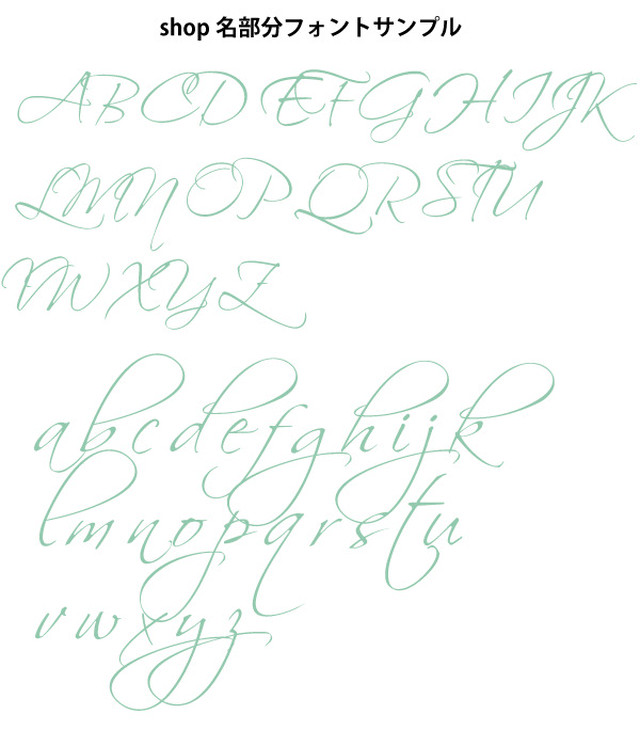 shop 名部分フォントサンプル
ABCDEFGHIJK
LMNOPQRSTU
VWXYZ
abcdefghijk
lmnopqrstu
vwxyz